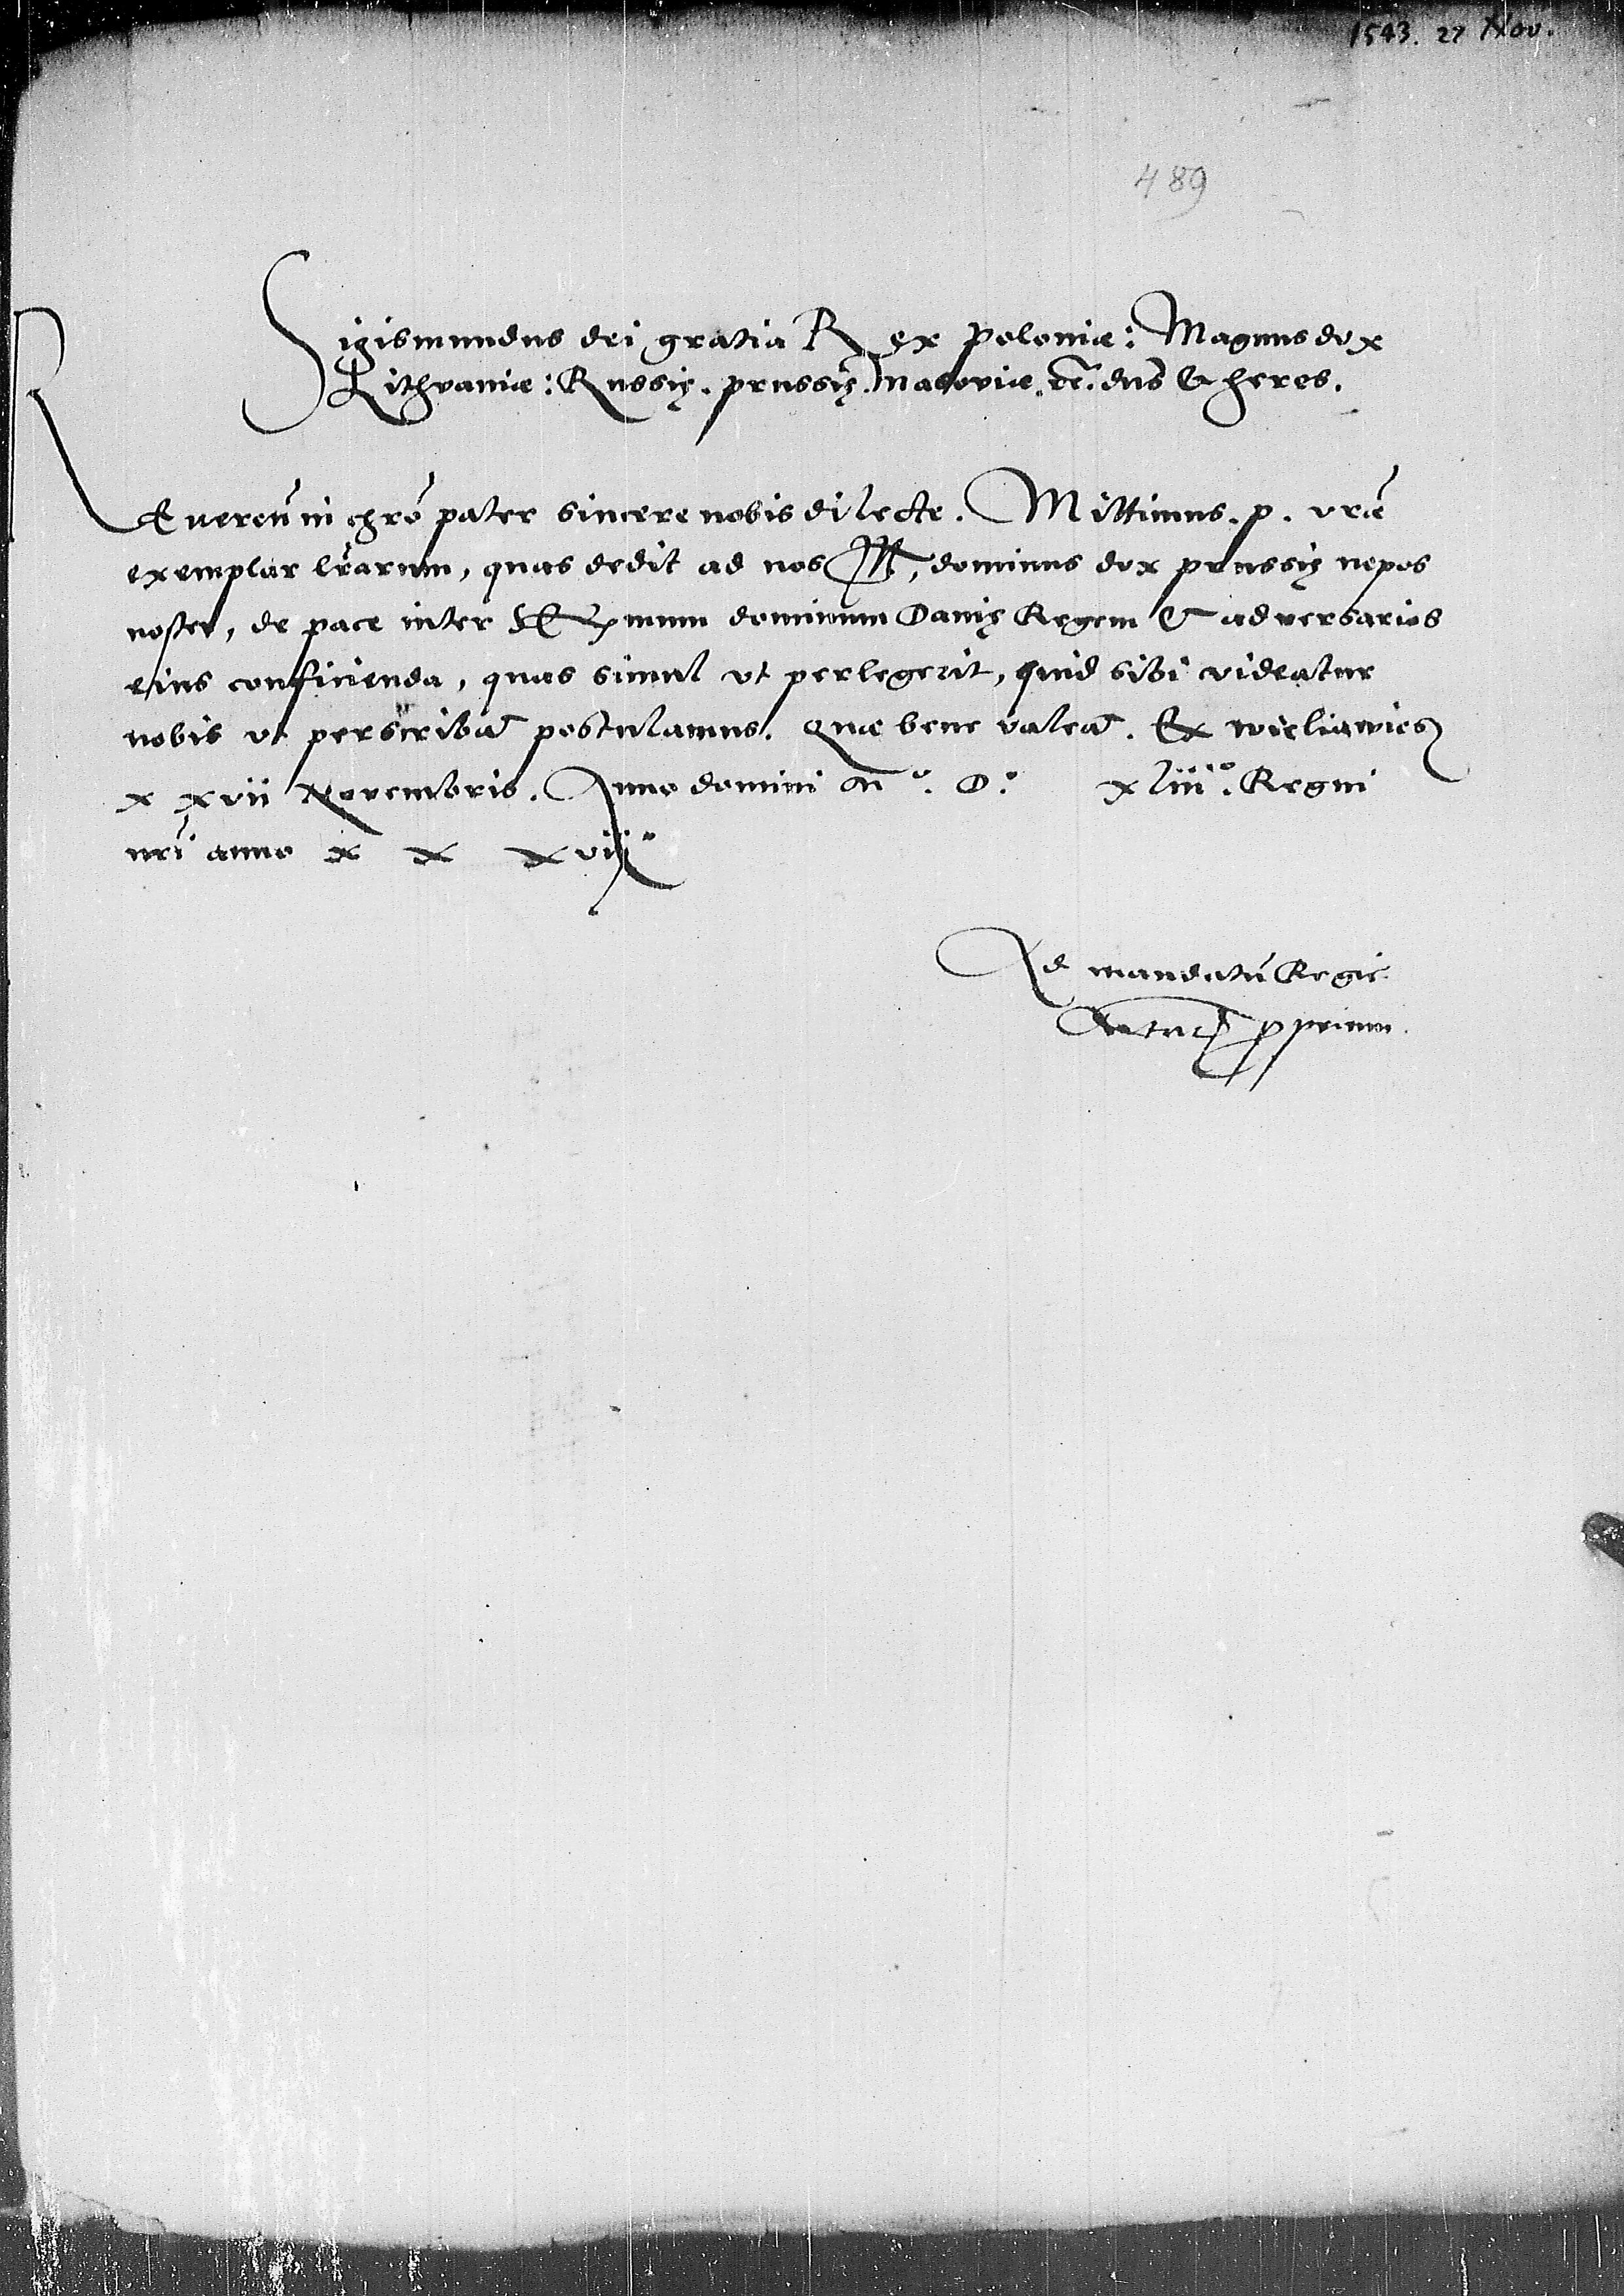 1543. 27 Nov.
489
Sigismundus dei gratia Rex Poloniæ: Magnus dux
Lithvaniæ: Russię. prussię. Masoviæ. etc̄. dn̄s & heres.
Reveren̄ in chrō pater sincere nobis dilecte. Mittimus. p. vr̄æ
exemplar lr̄arum, quas dedit ad nos Ill., dominus dux prussię nepos
noster, de pace inter Ser̄mum dominum Danię Regem & adversarios
eius conficienda, quas simul vt perlegerit, quid sibi videatur
nobis vt perscribat̄ postulamus. Quæ bene valeat̄. Ex wieliawies
xxvii Novembris. Anno domini M°. D°. xliii°. Regni
nr̄i anno xxxvii°
Ad mandatū Regiæ
pprium.